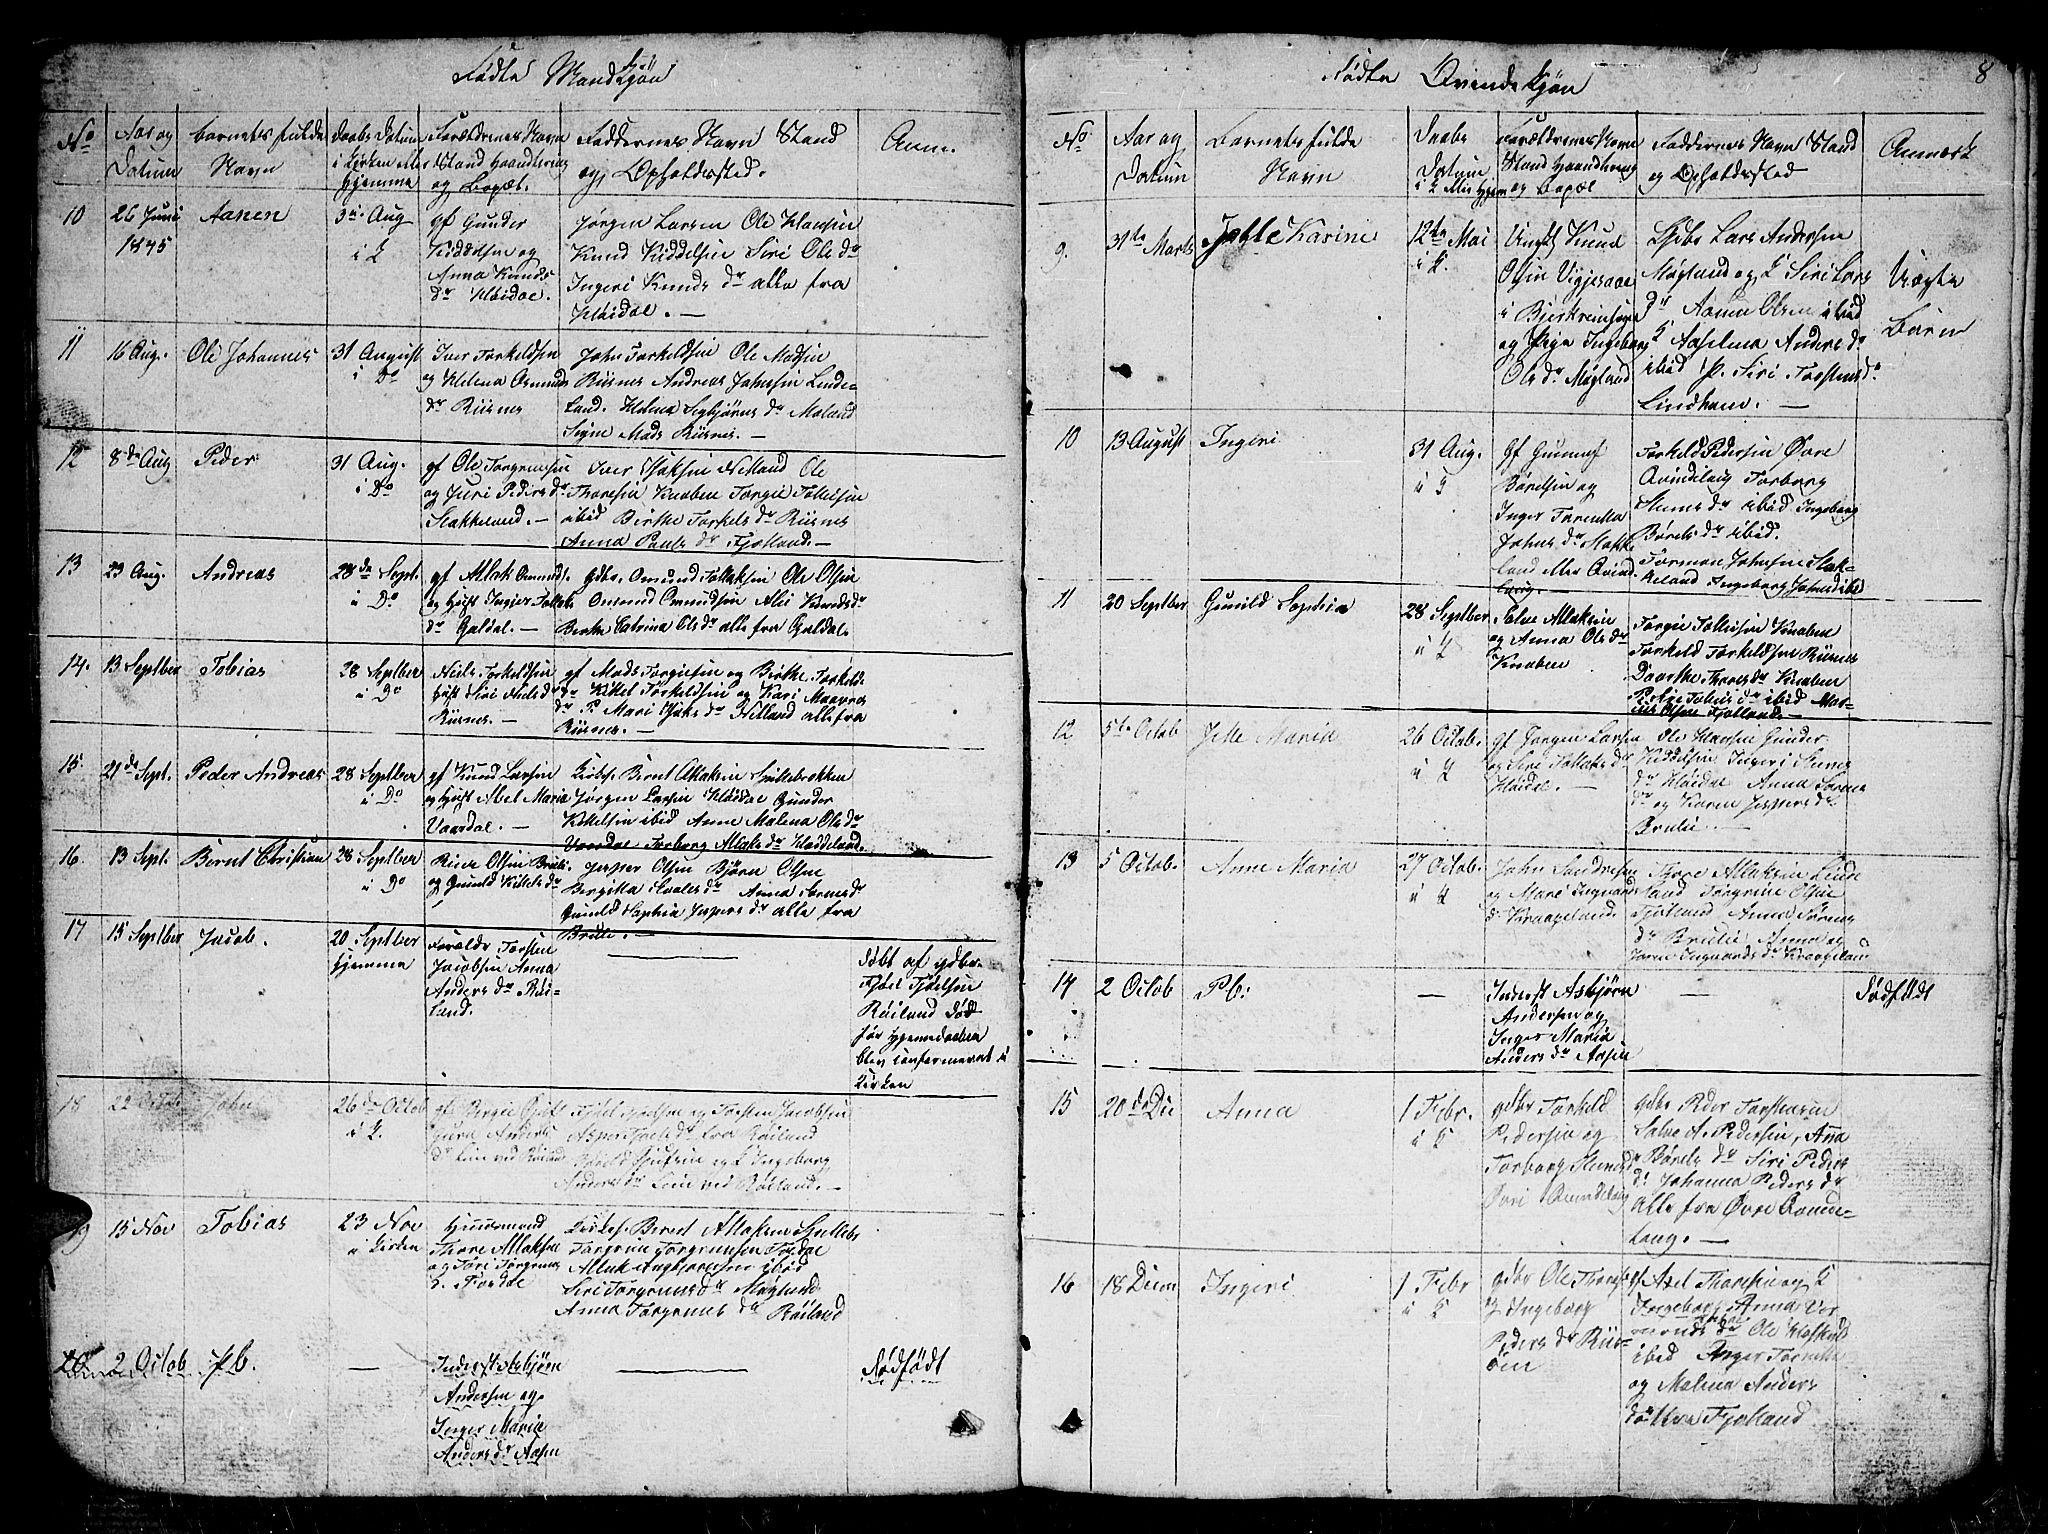 Fødte Mandkjøn
No
Aar og
Datum
barnets fulde
Navn
Daabs Datum
i Kirken eller
hjemme
Forældrenes Navn
Stand Haandtering
og Bopæl.
Faddernes Navn Stand
og Opholdssted.
Anm.
10
26 Juni
1845
Aanen
3die Aug
i K
gf Gunder
Kiddelsen og
Anna Knuds
dr Kløidal.
Jørgen Larsen Ole Hansen
Knud Kiddelsen Siri Ols dr
Ingeri Knuds dr alle fra
Kløidal. —
11
16 Aug.
Ole Johannes
31 August
i Do
Iver Torkeldsen
og Helena Osmunds
dr Risnes
John Torkeldsen Ole Madsen
Risnes Andreas Johnsen Linde-
land. Helena Sigbjørns dr Moland
Signe Mads Risnes. —
12
8de Aug
Peder
31 Aug.
i Do
gf Ole Torgrimsen
og Juri Peders dr
Stakkeland. —
Iver Isaksen Netland Ole
Thoresen Knaben Torgie Tollefsen
ibid Birthe Torkels dr Risnes
Anna Pauls dr Fjotland. —
13
23 Aug.
Andreas
28de Sept.
i Do
gf Atlak Osmunds.
og Hust Inger Tollaks
dr Galdal. —
Gdbr. Osmund Tollaksen Ole Olsen
Osmund Osmundsen Ali Knuds dr
Birthe Catrina Ols dr alle fra Galdal.
14.
13 Septber
Tobias
28 Septber
i Do
Niels Torkeldsen
Hust Siri Niels dr
Risnes. —
gf Mads Torgiesen og Birthe Torkelds
dr Kittel Torkeldsen og Kari
dr P Mari Isaks dr Netland alle fra
Risnes. —
15.
21de Sept.
Peder Andreas
28 Septber
i Do
gf Knud Larsen
og Hust Abel Maria
Vaardal. —
Kirkes. Bernt Atlaksen Spillebrokken
Jørgen Larsen Kløidal Gunder
Kittelsen ibid Anne Malena Ols dr
Vordal Torborg Atlaks dr Haddeland.
16.
13 Sept.
Bernt Christian
28 Septber
i Do
Reier Olsen Brulie
og Gunild Kittels dr
Jesper Olsen Bjørn Olsen
Birgitta Salves dr Anna Sørens dr
Gunild Sophia Jespers dr alle fra
Brulie. —
17
15 Septber
Jacob.
20 Septber
hjemme
Forældr Torsten
Jacobsen Anna
Anders dr Røi-
land.
—
Døbt af gdbr.
Fjæl Fjælsen
Røiland Død
før hjemmedaaben
blev confirmeret i
Kirken
18
22 Octob
John
26de Octob
i K.
gf Børgie
Guro Anders
dr Lien ved Røiland
Fjæl Fjælsen og Torsten Jacobsen
Asper Fjæls dr fra Røiland
og K Ingeborg
Anders dr Lien ved Røiland. —
19
15 Nov
Tobias
23 Nov
i Kirken
Huusmand
Thore Atlaksen
og Tori Torgrims
K. Fordal
Kirkes. Bernt Atlaksen Spilleb.
Torgrim Torgrimsen Fordal
Atlak Angbjørnsen ibid
Siri Torgrims dr Møgland
Anna Torgrims dr Røiland
20
2 Octob
Pb.
—
Inderst Asbjørn
Andersen og
Inger Maria
Anders dr Aasen
—
Dødfødt
Fødte Qvindekjøn
8
No
Aar og
Datum
Barnets fulde
Navn
Daabs
Datum
i K eller Hjem
Forældrenes Navn
Stand Haandtering
og Bopæl
Faddernes Navn Stand
og Opholdssted
Anmerk
9.
31te Marts
Jette Karine
12te Mai
i K.
Ungk Knud
Olsen Vigjesaae
i Bjerkreimsogn
og Pige Ingeborg
Ols dr Møgland
Lars Andersen
Møgland og K Siri Lars
dr Aanen Olsen ibid
K Aaselena Anders dr
ibid P. Siri Torstens dr
Lindham. —
Uægte
Baren
10
13 August
Ingeri
31 Aug.
i K
gf Gunnuf
Børelsen og
Inger Tarenlla
Johns dr Stakke
land eller Qvind-
laug. —
Torkeld Pedersen Øvre
Qvindelaug Torborg
Stenes dr ibid Ingeborg
Børels dr ibid.
Tormon Johnsen Stak-
keland Ingeborg Johns dr ibid
11
20 Septber
Gunild Sophia
28 Septber
i K
Salve Atlaksen
og Anna Ols dr
Knaben
Torgie Tollefsen Knaben
Torkeld Torkeldsen Risnes
Daarthe Thores dr Knaben
Tobias dr ibid Mar-
Olsen Fjotland. —
12
5te Octob
Jette Maria
26 Octob.
i K
gf Jørgen Larsen
og Siri Tollaks dr
Kløidal. —
Ole Hansen Gunder
Kiddelsen Ingeri Stenes
dr Kløidal Anna Sørens
dr og Karen Jespers dr
Brulie. —
13
5 Octob.
Anne Maria
27 Octob.
i K
John Sundresen
og Mari Ingvards
dr Kraageland.
Thore Atlaksen Linde
land Torgrim Olsen
Fjotland Anna Sørens
dr Brulie Anna og
Ingvards dr Kraageland
14
2 Octob
Pb.
—
Inderst Asbjørn
Andersen og
Inger Maria
Anders dr Aasen
—
Dødfødt
15
20de Dec
Anna
1 Febr.
i K
gdbr Torkeld
Pedersen og
Torborg Stenes
Øvri Qvindelaug
gdbr Peder Torstensen
Salve A. Pedersen, Ana
Børels dr Siri Peders
dr Johanna Peders dr
alle fra Øvre Qvinde-
laug. —
16
18 Decm
Ingeri
1 Febr
i K
gdbr Ole Thoresen
K Ingeborg
Peders dr Ris-
øen
gf Axel Thoresen og K
Ingeborg Anna
dr Ole
ibid Inger
og Malena Anders
Fjotland